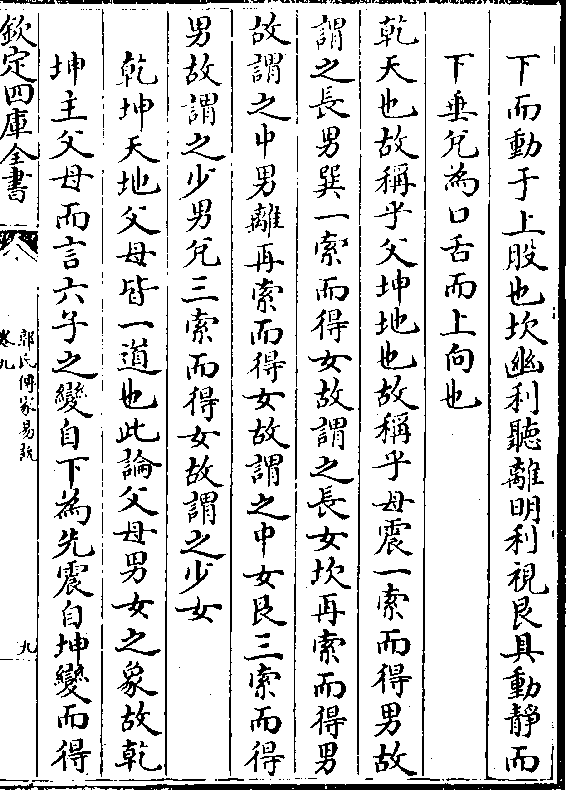 下而動于上股也坎幽利聽離明利視艮具動靜而
下垂兌為口舌而上向也
乾天也故稱乎父坤地也故稱乎母震一索而得男故
謂之長男巽一索而得女故謂之長女坎再索而得男
故謂之中男離再索而得女故謂之中女艮三索而得
男故謂之少男兌三索而得女故謂之少女
乾坤天地父母皆一道也此論父母男女之象故乾
坤主父母而言六子之變自下為先震自坤變而得
欽定四庫全書
郭氏傳家易說
卷九
九